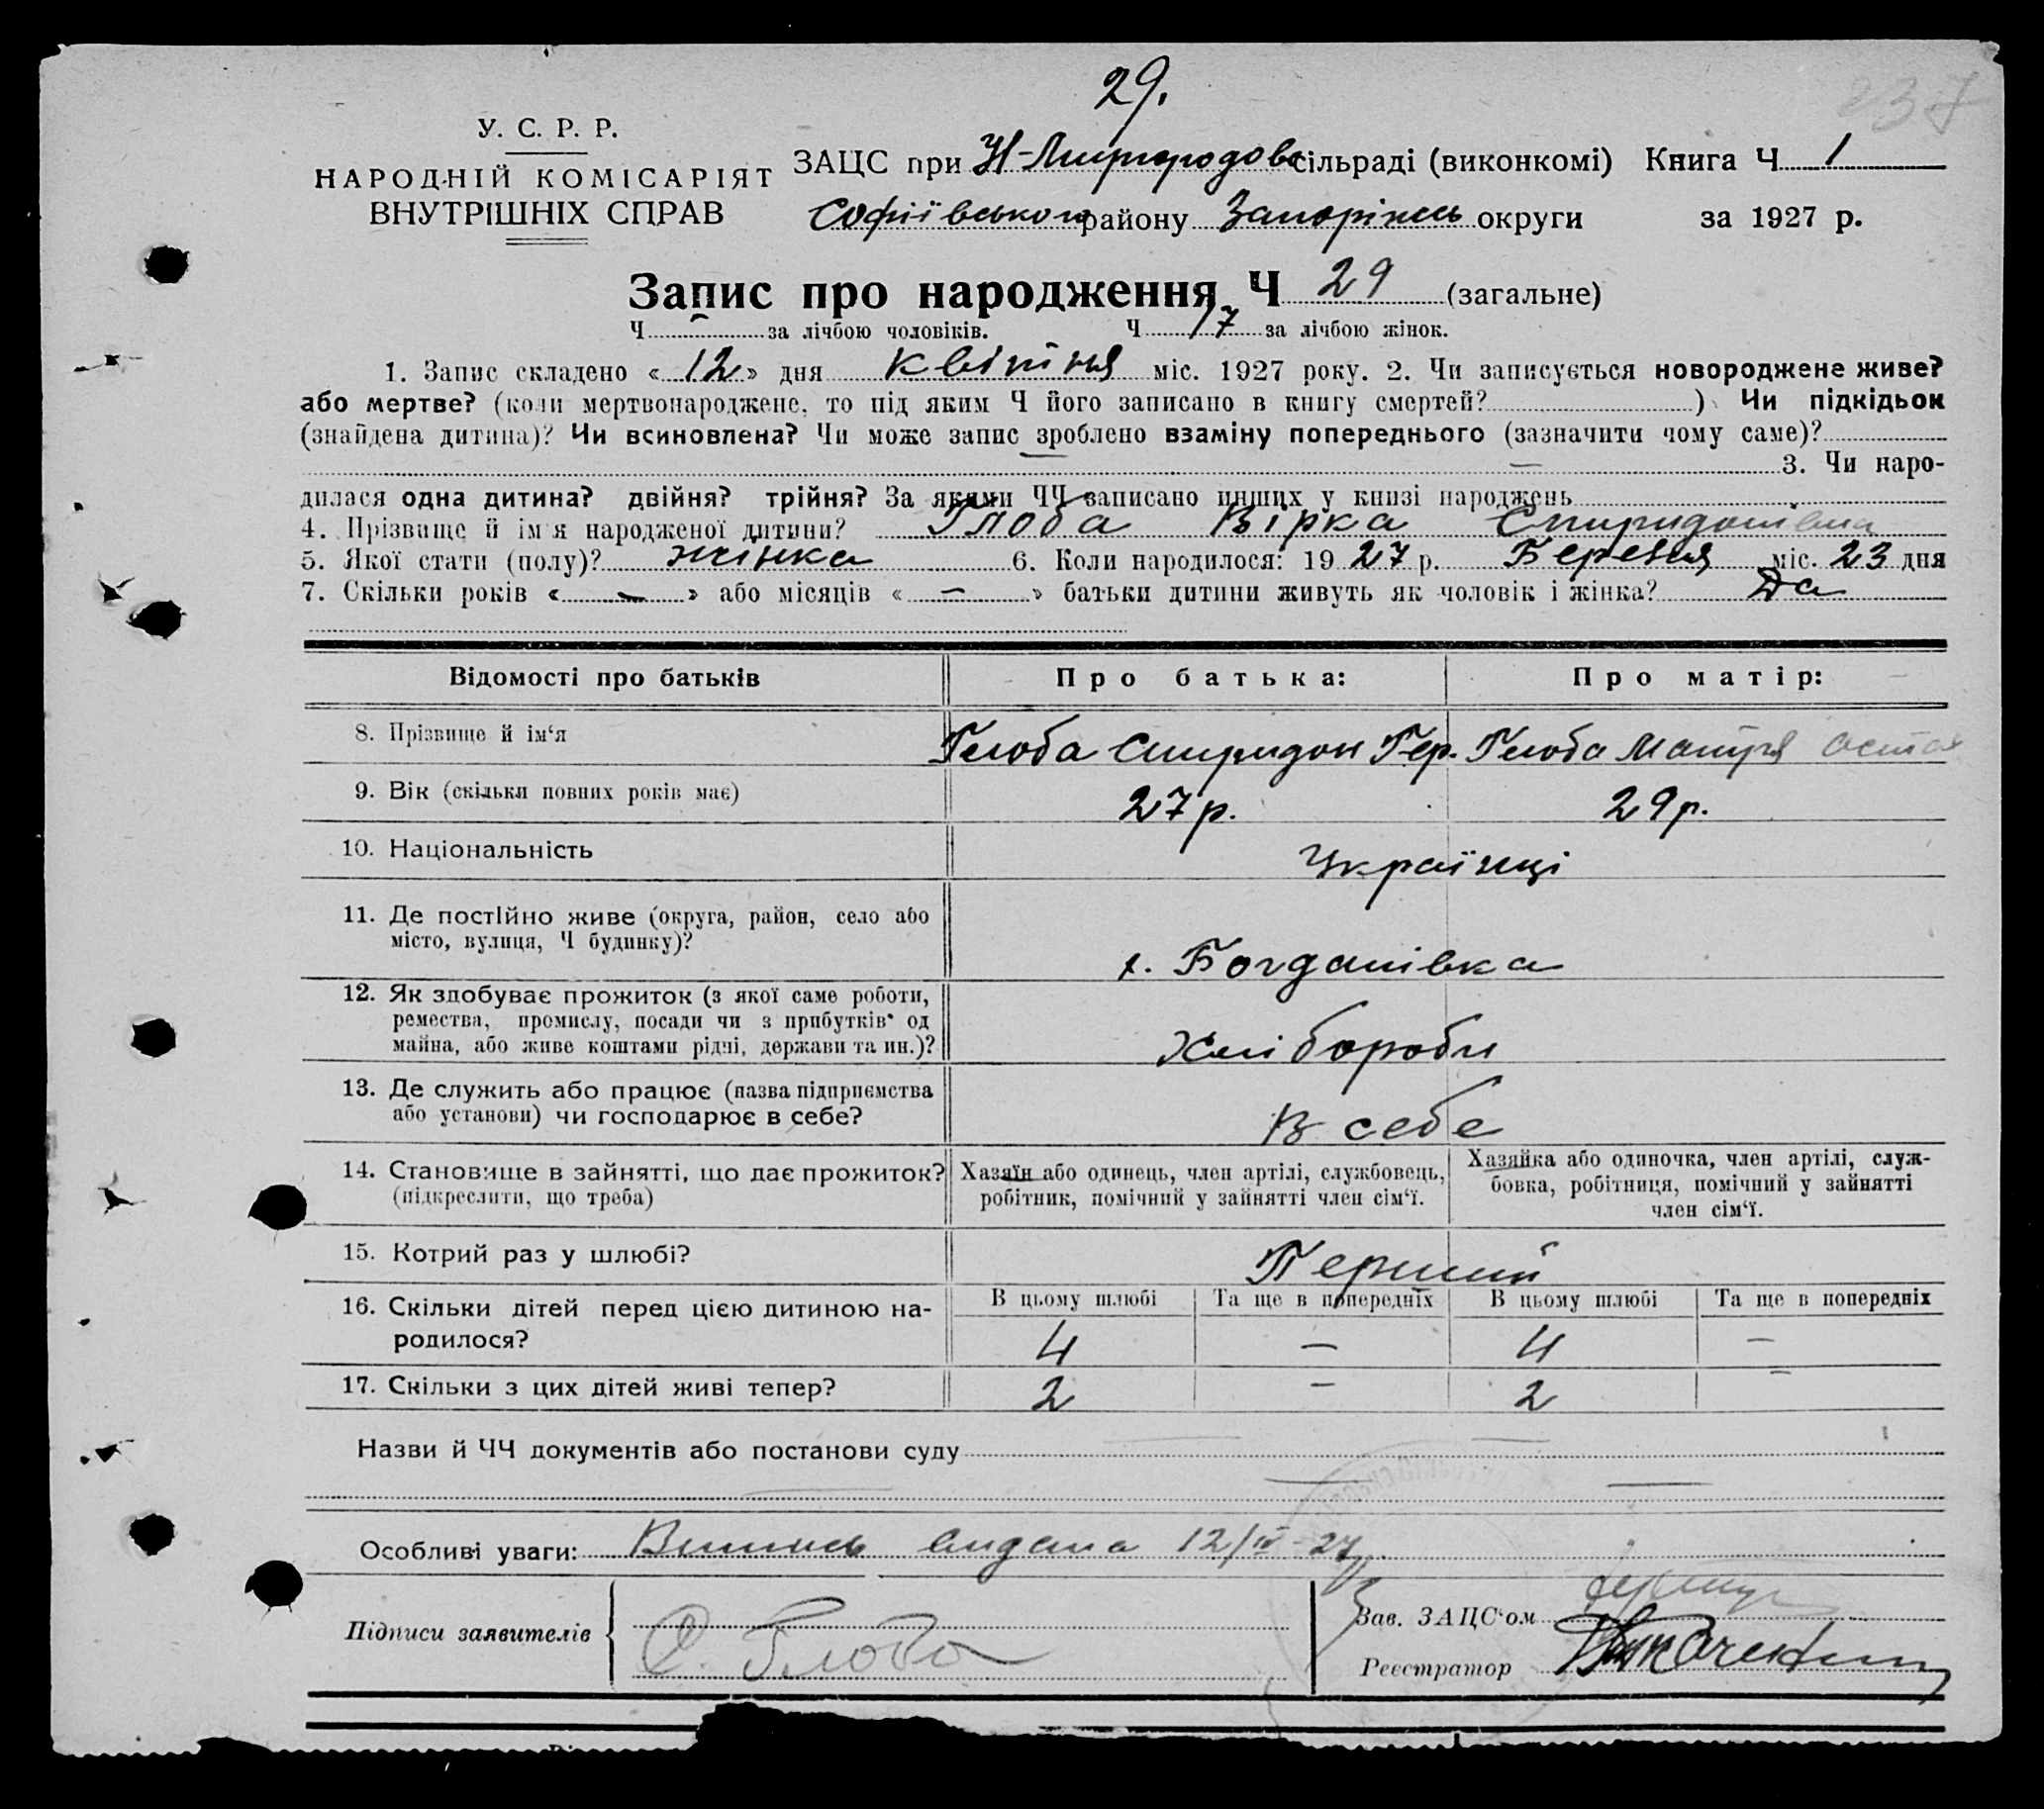 29.
237
У. С. Р. Р.
НАРОДНІЙ КОМІСАРІЯТ
ВНУТРІШНІХ СПРАВ
ЗАЦС при Н-Миргородов сільраді (виконкомі) Книга Ч 1
Софіївського району Запоріжсь округи за 1927 р.
Запис про народження Ч 29 (загальне)
Ч - за лічбою чоловіків. Ч 17 за лічбою жінок.
1. Запис складено « 12 » дня квітня міс. 1927 року. 2. Чи записується новороджене живе?
або мертве? (коли мертвонароджене, то під яким Ч його записано в книгу смертей? ) Чи підкідьок
(знайдена дитина)? Чи всиновлена? Чи може запис зроблено взаміну попереднього (зазначити чому саме)?
— 3. Чи наро-
дилася одна дитина? двійня? трійня? За якими ЧЧ записано инших у книзі народжень
4. Прізвище й ім'я народженої дитини? Глоба Вірка Спиридонівна
5. Якої стати (полу)? жінка 6. Коли народилося: 19 27 р. Березня міс. 23 дня
7. Скільки років « — » або місяців « — » батьки дитини живуть як чоловік і жінка? Да
Відомості про батьків Про батька: Про матір:
8. Прізвище й ім‘я Глоба Спиридон Гер. Глоба Мотря Остап
9. Вік (скільки повних років має) 27 р. 29 р.
10. Національність Українці
11. Де постійно живе (округа, район, село або
місто, вулиця, Ч будинку)? х. Богданівка
12. Як здобуває прожиток (з якої саме роботи,
ремества, промислу, посади чи з прибутків од
майна, або живе коштами рідні, держави та ин.)? Хлібороби
13. Де служить або працює (назва підприємства
або установи) чи господарює в себе? В себе
14. Становище в зайнятті, що дає прожиток? Хазяїн або одинець, член артілі, службовець, Хазяйка або одиночка, член артілі, служ-
(підкреслити, що треба) робітник, помічний у зайнятті член сім‘ї. бовка, робітниця, помічний у зайнятті
член сім‘ї.
15. Котрий раз у шлюбі? Перший
16. Скільки дітей перед цією дитиною на- В цьому шлюбі Та ще в попередніх В цьому шлюбі Та ще в попередніх
родилося? 4 — 4 —
17. Скільки з цих дітей живі тепер? 2 — 2 —
Назви й ЧЧ документів або постанови суду
Особливі уваги: Випись видана 12/IV-27
Підписи заявителів С. Глоба Зав. ЗАЦС‘ом
Реєстратор